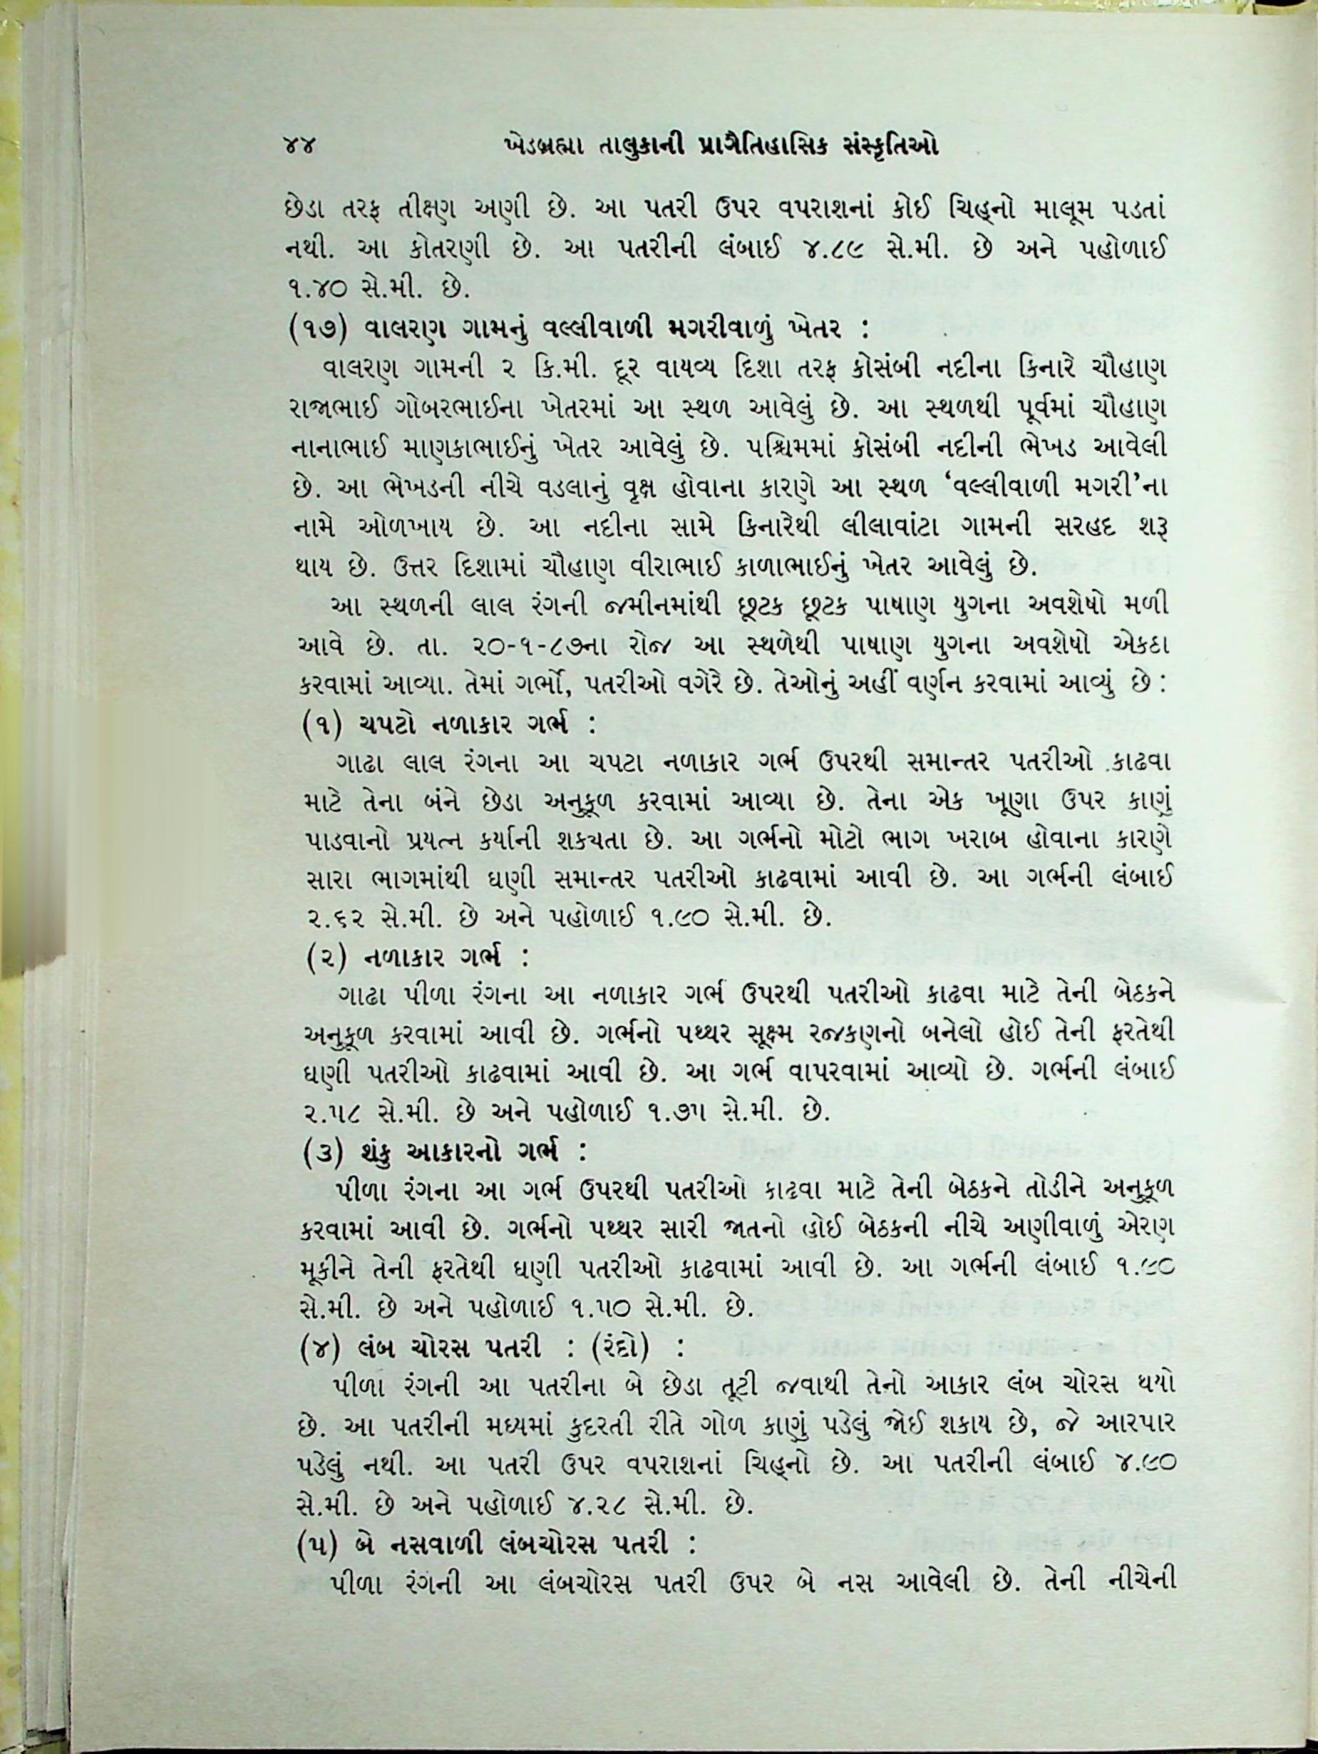 ૪૪ ખેડબ્રહ્મા તાલુકાની પ્રાગૈતિહાસિક સંસ્કૃતિઓ
છેડા તરફ તીક્ષ્ણ અણી છે. આ પતરી ઉપર વપરાશનાં કોઈ ચિહ્નો માલૂમ પડતાં
નથી. આ કોતરણી છે. આ પતરીની લંબાઈ ૪.૮૯ સે.મી. છે અને પહોળાઈ
૧.૪૦ સે.મી. છે.
(૧૭) વાલરણ ગામનું વલ્લીવાળી મગરીવાળું ખેતર :
વાલરણ ગામની ૨ કિ.મી. દૂર વાયવ્ય દિશા તરફ કોસંબી નદીના કિનારે ચૌહાણ
રાજાભાઈ ગોબરભાઈના ખેતરમાં આ સ્થળ આવેલું છે. આ સ્થળથી પૂર્વમાં ચૌહાણ
નાનાભાઈ માણકાભાઈનું ખેતર આવેલું છે. પશ્ચિમમાં કોસંબી નદીની ભેખડ આવેલી
છે. આ ભેખડની નીચે વડલાનું વૃક્ષ હોવાના કારણે આ સ્થળ ‘વલ્લીવાળી મગરી’ના
નામે ઓળખાય છે. આ નદીના સામે કિનારેથી લીલાવાંટા ગામની સરહદ શરૂ
થાય છે. ઉત્તર દિશામાં ચૌહાણ વીરાભાઈ કાળાભાઈનું ખેતર આવેલું છે.
આ સ્થળની લાલ રંગની જમીનમાંથી છૂટક છૂટક પાષાણ યુગના અવશેષો મળી
આવે છે. તા. ૨૦-૧-૮૭ના રોજ આ સ્થળેથી પાષાણ યુગના અવશેષો એકઠા
કરવામાં આવ્યા. તેમાં ગર્ભો, પતરીઓ વગેરે છે. તેઓનું અહીં વર્ણન કરવામાં આવ્યું છે :
(૧) ચપટો નળાકાર ગર્ભ :
ગાઢા લાલ રંગના આ ચપટા નળાકાર ગર્ભ ઉપરથી સમાન્તર પતરીઓ કાઢવા
માટે તેના બંને છેડા અનુકૂળ કરવામાં આવ્યા છે. તેના એક ખૂણા ઉપર કાણું
પાડવાનો પ્રયત્ન કર્યાની શક્યતા છે. આ ગર્ભનો મોટો ભાગ ખરાબ હોવાના કારણે
સારા ભાગમાંથી ઘણી સમાન્તર પતરીઓ કાઢવામાં આવી છે. આ ગર્ભની લંબાઈ
૨.૬૨ સે.મી. છે અને પહોળાઈ ૧.૯૦ સે.મી. છે.
(૨) નળાકાર ગર્ભ :
ગાઢા પીળા રંગના આ નળાકાર ગર્ભ ઉપરથી પતરીઓ કાઢવા માટે તેની બેઠકને
અનુકૂળ કરવામાં આવી છે. ગર્ભનો પથ્થર સૂક્ષ્મ રજકણનો બનેલો હોઈ તેની ફરતેથી
ઘણી પતરીઓ કાઢવામાં આવી છે. આ ગર્ભ વાપરવામાં આવ્યો છે. ગર્ભની લંબાઈ
૨.૫૮ સે.મી. છે અને પહોળાઈ ૧.૭૫ સે.મી. છે.
(૩) શંકુ આકારનો ગર્ભ :
પીળા રંગના આ ગર્ભ ઉપરથી પતરીઓ કાઢવા માટે તેની બેઠકને તોડીને અનુકૂળ
કરવામાં આવી છે. ગર્ભનો પથ્થર સારી જાતનો હોઈ બેઠકની નીચે અણીવાળું એરણ
મૂકીને તેની ફરતેથી ઘણી પતરીઓ કાઢવામાં આવી છે. આ ગર્ભની લંબાઈ ૧.૯૦
સે.મી. છે અને પહોળાઈ ૧.૫૦ સે.મી. છે.
(૪) લંબ ચોરસ પતરી : (રંદો) :
પીળા રંગની આ પતરીના બે છેડા તૂટી જવાથી તેનો આકાર લંબ ચોરસ થયો
છે. આ પતરીની મધ્યમાં કુદરતી રીતે ગોળ કાણું પડેલું જોઈ શકાય છે, જે આરપાર
પડેલું નથી. આ પતરી ઉપર વપરાશનાં ચિહ્નો છે. આ પતરીની લંબાઈ ૪.૯૦
સે.મી. છે અને પહોળાઈ ૪.૨૮ સે.મી. છે.
(૫) બે નસવાળી લંબચોરસ પતરી :
પીળા રંગની આ લંબચોરસ પતરી ઉપર બે નસ આવેલી છે. તેની નીચેની